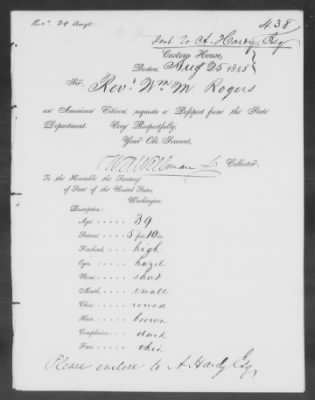 N.38
Sent to A. Hardy, Esq
Custom House,
Boston, Aug 25 1845
Sir,
Revd. Wm. M. Rogers
an American Citizen, requests a Passport from the State
Department. Very Respectfully,
Your Obt. Servant,
Collector.
To the Honorable the Secretary
of State of the United States,
Washington.
Description:
Age 39
Stature 5 feet 10 in
Forehead high
Eyes hazel
Nose short
Mouth small
Chin round
Hair brown
Complexion dark
Face thin
Please enclose to A. Hardy Esq,